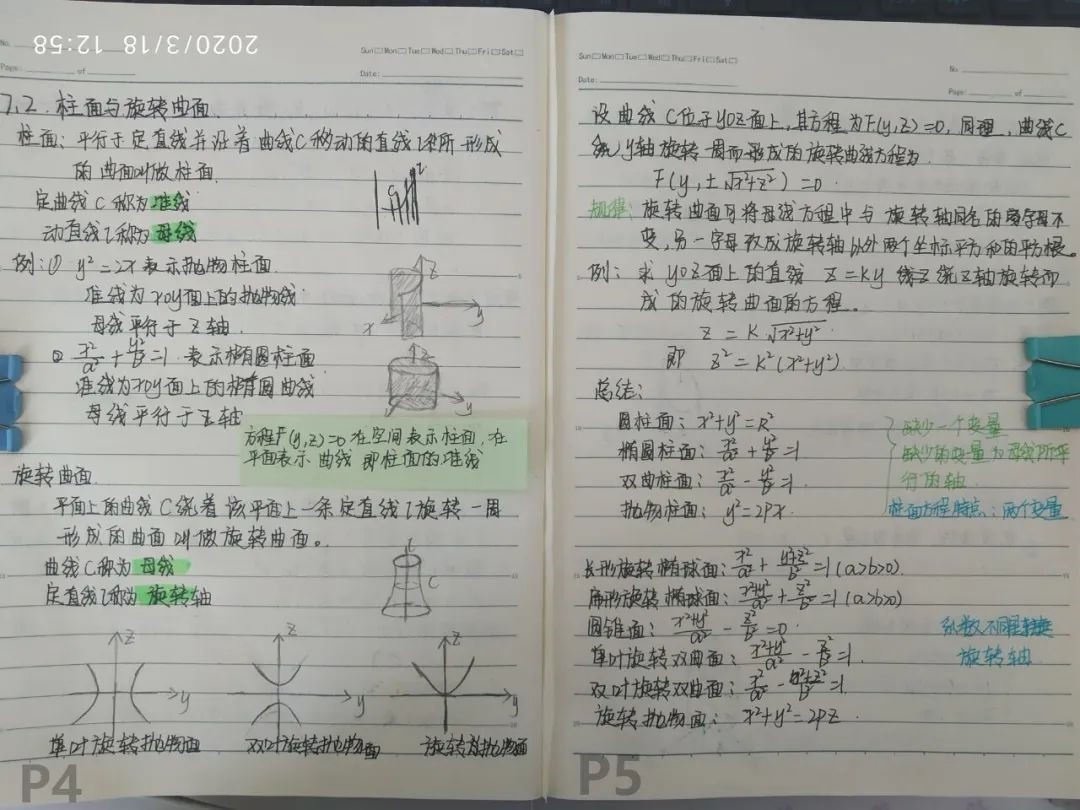 2020/3/18 12:58
No.
Page: of
Sun Mon Tue Wed Thu Fri Sat
Date:
7.2. 柱面与旋转曲面
柱面：平行于定直线并沿着曲线C移动的直线l所形成
的曲面叫做柱面.
定曲线C称为准线
动直线l称为母线
C l
例：① y²=2x表示抛物柱面.
准线为xoy面上的抛物线
母线平行于z轴.
z
x y
② x²/a²+y²/b²=1. 表示椭圆柱面
准线为xoy面上的椭圆曲线
母线平行于z轴
z
y
方程F(y,z)=0在空间表示柱面，在
平面表示曲线 即柱面的准线
旋转曲面
平面上的曲线C绕着该平面上一条定直线l旋转一周
形成的曲面叫做旋转曲面。
曲线C称为母线
定直线l称为旋转轴
l
C
z z z
y y y
单叶旋转抛物面 双叶旋转抛物面 旋转抛物面
P4
Sun Mon Tue Wed Thu Fri Sat
Date:
No.
Page: of
设曲线C位于yoz面上，其方程为F(y,z)=0，同理，曲线C
绕y轴旋转一周而形成的旋转曲线方程为.
F(y,±√x²+z²)=0.
规律：旋转曲面可将母线方程中与旋转轴同名的字母不
变，另一字母改成旋转轴以外两个坐标平方和的平方根。
例：求yoz面上的直线 z=ky 绕z轴旋转而
成的旋转曲面的方程。
z=k√x²+y²
即 z²=k²(x²+y²).
总结：
圆柱面：x²+y²=R²
椭圆柱面：x²/a²+y²/b²=1
双曲柱面：x²/a²-y²/b²=1
抛物柱面：y²=2px.
缺少一个变量
缺少的变量为母线所平
行的轴.
柱面方程特点：两个变量
长形旋转椭球面：x²/a²+(y²+z²)/b²=1(a>b>0).
扁形旋转椭球面：(x²+y²)/a²+z²/b²=1(a>b>0)
圆锥面：(x²+y²)/a²-z²/b²=0.
单叶旋转双曲面：(x²+y²)/a²-z²/b²=1
双叶旋转双曲面：x²/a²-(y²+z²)/b²=1
旋转抛物面：x²+y²=2pz.
系数不同
旋转轴
P5